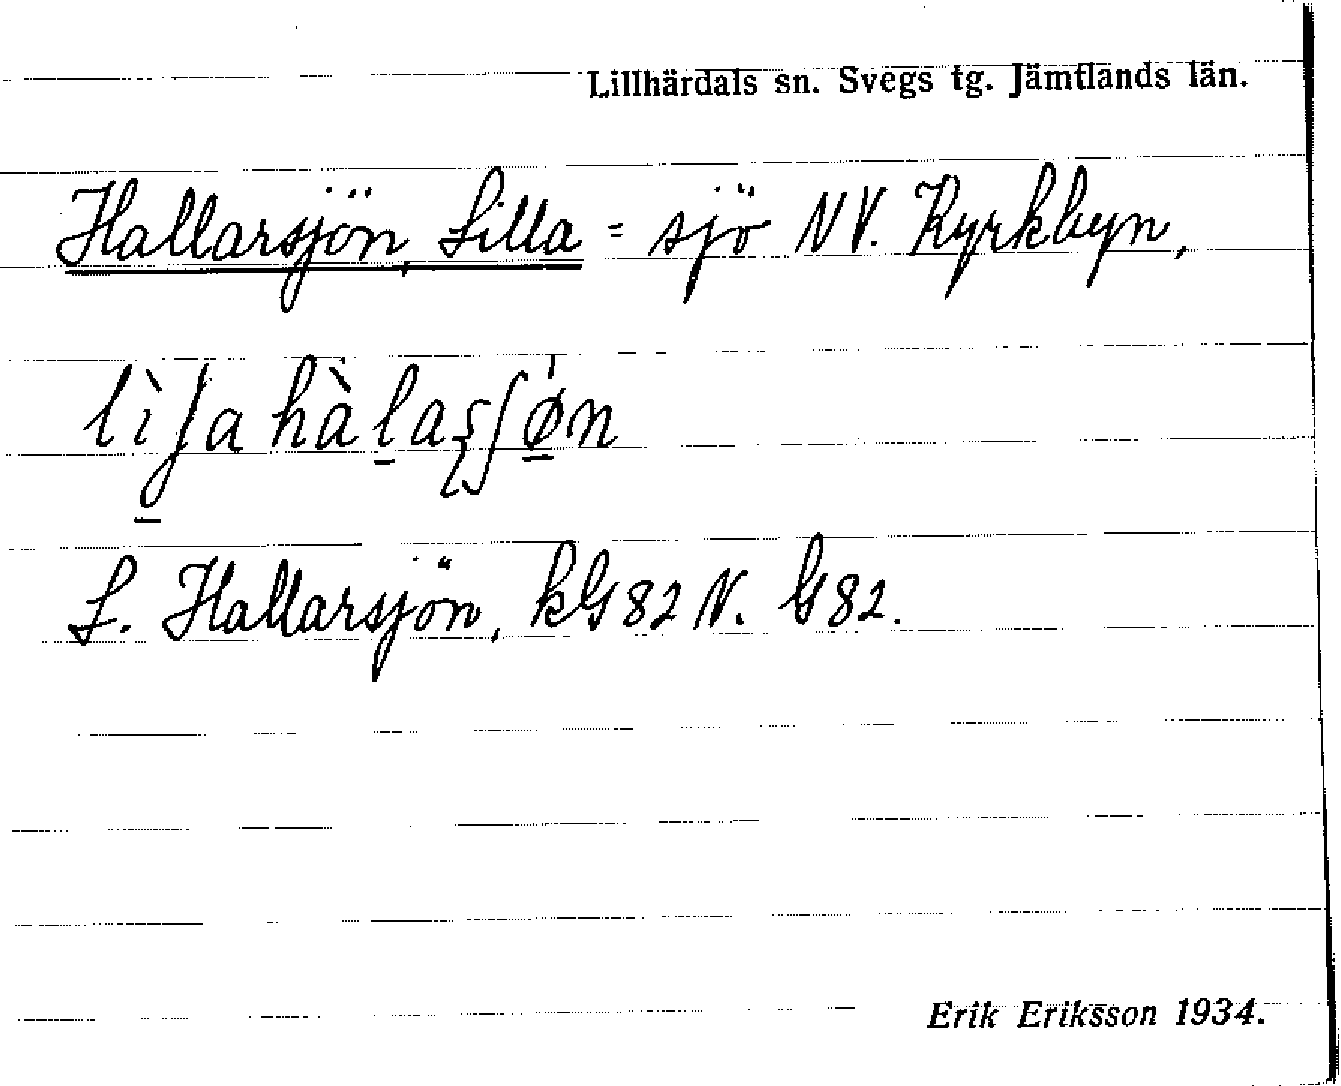 Lillhärdals sn. Svegs tg. Jämtlands län.
Hallarsjön, Lilla = sjö NV. Kyrkbyn,
L. Hallarsjön, kG82 N. G82.
Erik Eriksson 1934.